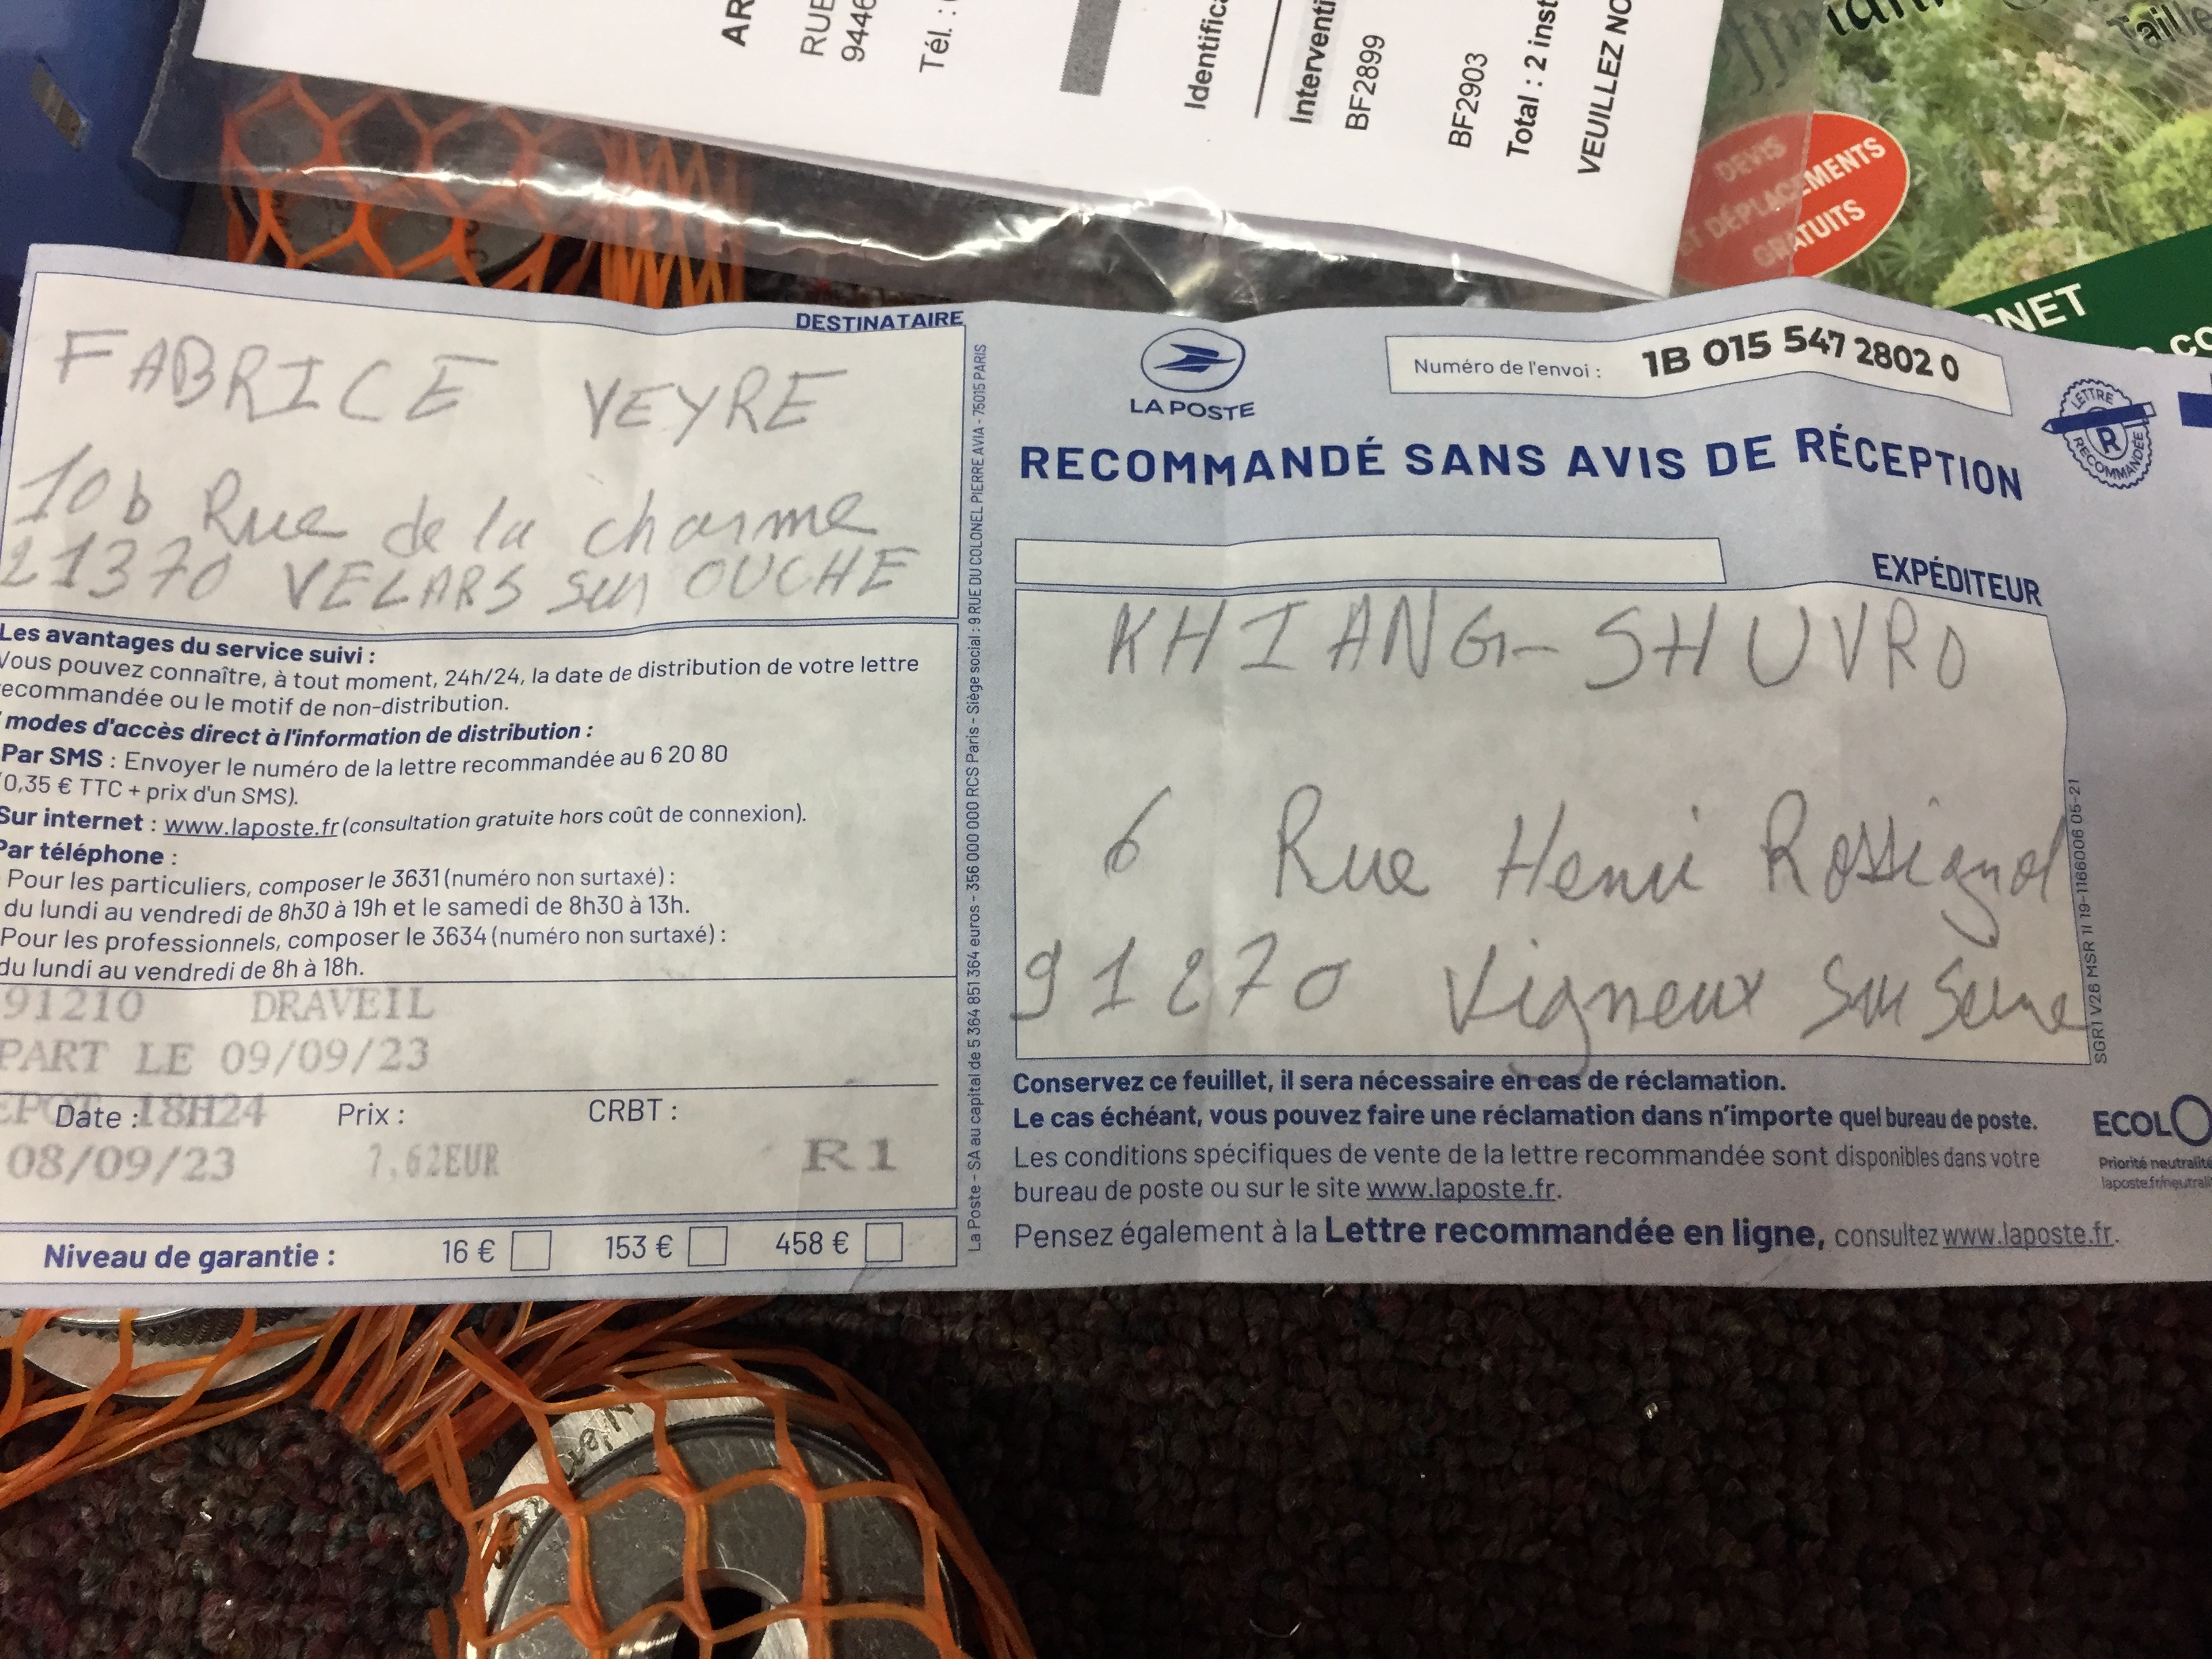 AR
RUE
9446
Tél. :
Identifica
Interventi
BF2899
BF2903
Total : 2 inst
VEUILLEZ NO
Taille
DEVIS
ET DÉPLACEMENTS
GRATUITS
RNET
DESTINATAIRE
FABRICE VEYRE
10b Rue de la charme
21370 VELARS sur OUCHE
Les avantages du service suivi :
Vous pouvez connaître, à tout moment, 24h/24, la date de distribution de votre lettre
recommandée ou le motif de non-distribution.
modes d'accès direct à l'information de distribution :
Par SMS : Envoyer le numéro de la lettre recommandée au 6 20 80
(0,35 € TTC + prix d'un SMS).
Sur internet : www.laposte.fr (consultation gratuite hors coût de connexion).
Par téléphone :
Pour les particuliers, composer le 3631 (numéro non surtaxé) :
du lundi au vendredi de 8h30 à 19h et le samedi de 8h30 à 13h.
Pour les professionnels, composer le 3634 (numéro non surtaxé) :
du lundi au vendredi de 8h à 18h.
91210 DRAVEIL
PART LE 09/09/23
EPOT 18H24
Date : Prix : CRBT :
08/09/23 7,62EUR R1
Niveau de garantie : 16 € 153 € 458 €
La Poste - SA au capital de 5 364 851 364 euros - 356 000 000 RCS Paris - Siège social : 9 RUE DU COLONEL PIERRE AVIA - 75015 PARIS
LA POSTE
Numéro de l'envoi : 1B 015 547 2802 0
LETTRE
R
RECOMMANDÉE
RECOMMANDÉ SANS AVIS DE RÉCEPTION
EXPÉDITEUR
KHIANG-SHUVRO
6 Rue Henri Rossignol
91270 Vigneux sur Seine
SGR1 V26 MSR 11 19-1166006 05-21
Conservez ce feuillet, il sera nécessaire en cas de réclamation.
Le cas échéant, vous pouvez faire une réclamation dans n'importe quel bureau de poste.
Les conditions spécifiques de vente de la lettre recommandée sont disponibles dans votre
bureau de poste ou sur le site www.laposte.fr.
Pensez également à la Lettre recommandée en ligne, consultez www.laposte.fr.
ECOLO
Priorité neutralité
laposte.fr/neutrali